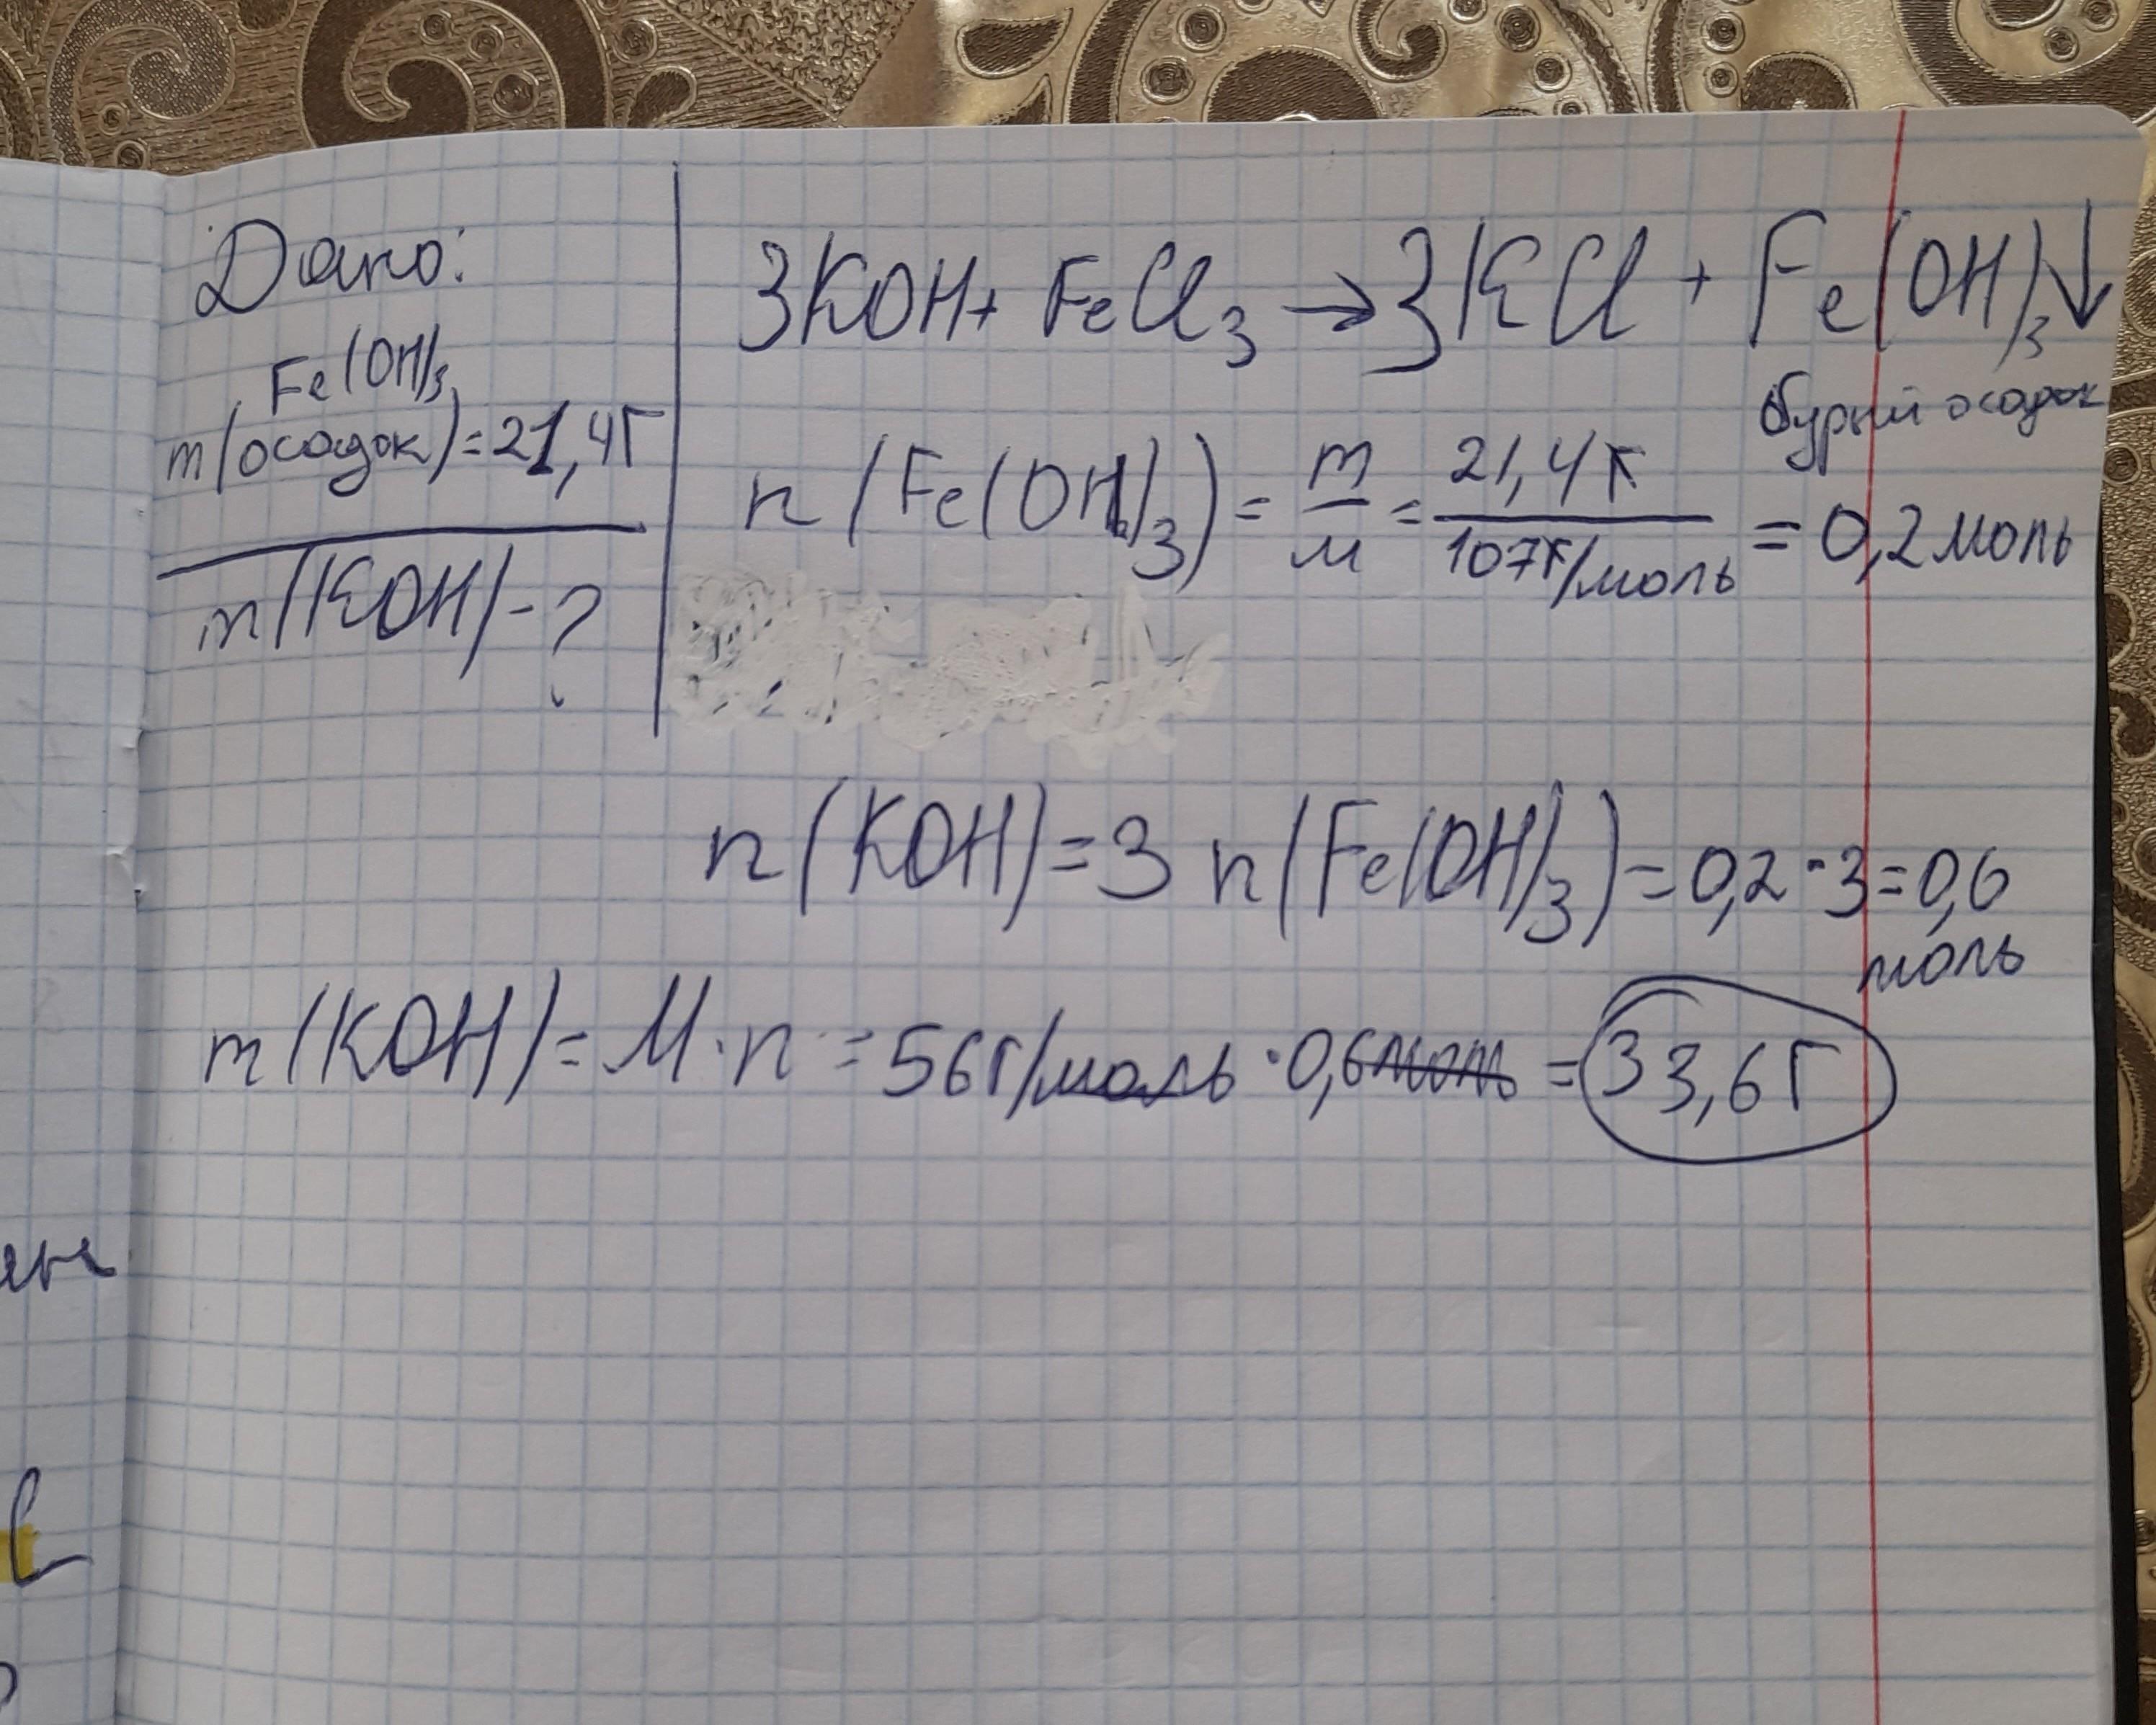 Дано:
Fe(OH)3
m(осадок)=21,4г
m(KOH)-?
3KOH+ FeCl3 →3KCl + Fe(OH)3↓
бурый осадок
n(Fe(OH)3) = m/M = 21,4г/107г/моль = 0,2 моль
n(KOH)=3 n(Fe(OH)3)=0,2·3=0,6
моль
m(KOH)= M·n = 56г/моль·0,6моль = 33,6г